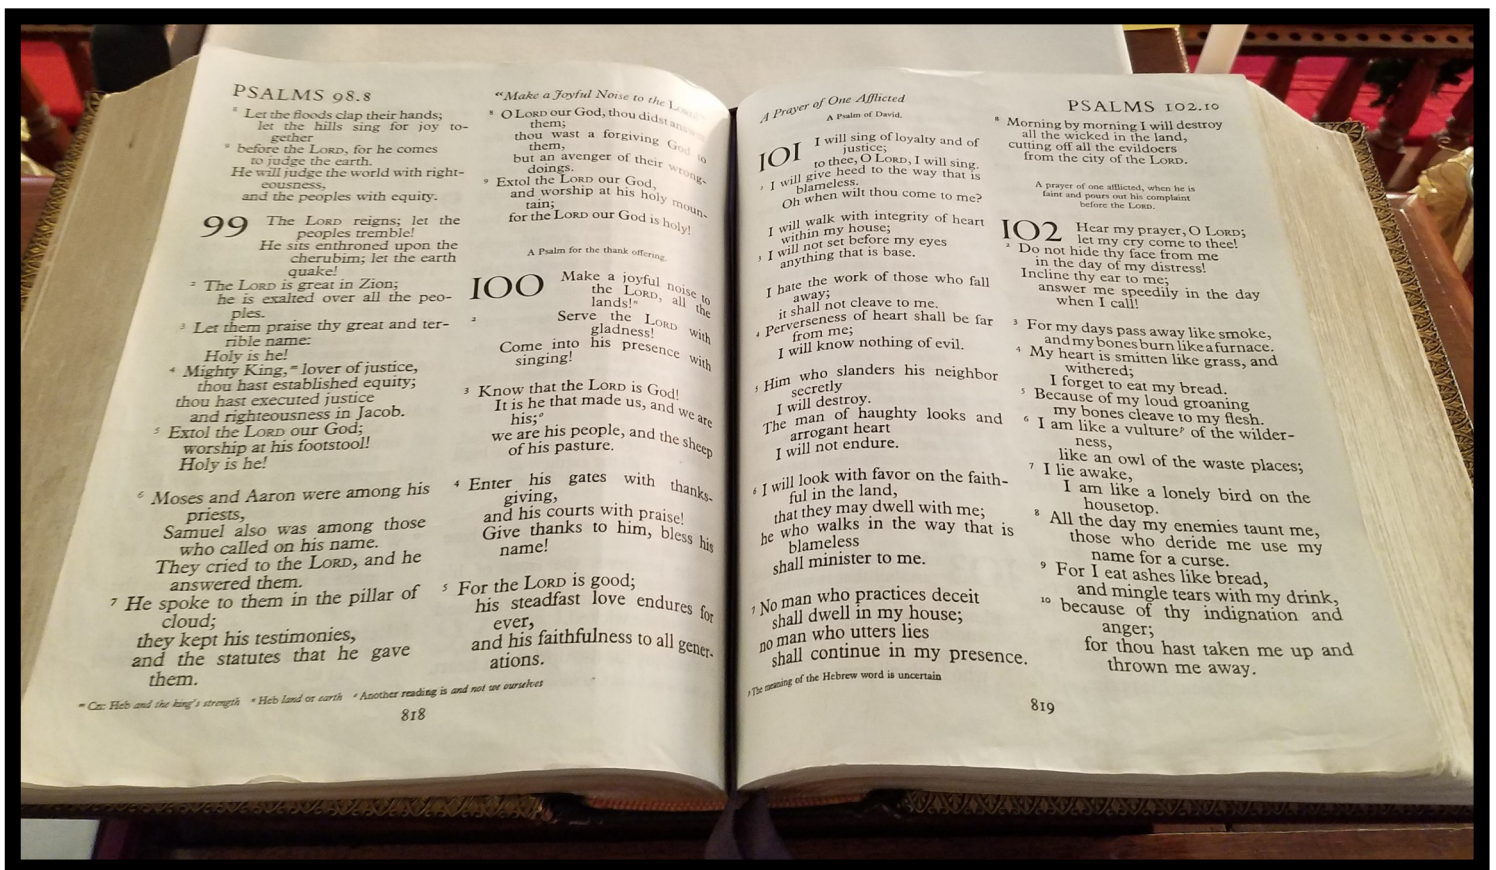 PSALMS 98.8
⁸ Let the floods clap their hands;
let the hills sing for joy to-
gether
⁹ before the LORD, for he comes
to judge the earth.
He will judge the world with right-
eousness,
and the peoples with equity.
99 The LORD reigns; let the
peoples tremble!
He sits enthroned upon the
cherubim; let the earth
quake!
² The LORD is great in Zion;
he is exalted over all the peo-
ples.
³ Let them praise thy great and ter-
rible name:
Holy is he!
⁴ Mighty King,ᵐ lover of justice,
thou hast established equity;
thou hast executed justice
and righteousness in Jacob.
⁵ Extol the LORD our God;
worship at his footstool!
Holy is he!
⁶ Moses and Aaron were among his
priests,
Samuel also was among those
who called on his name.
They cried to the LORD, and he
answered them.
⁷ He spoke to them in the pillar of
cloud;
they kept his testimonies,
and the statutes that he gave
them.
"Make a Joyful Noise to the Lord"
⁸ O LORD our God, thou didst answer
them;
thou wast a forgiving God to
them,
but an avenger of their wrong-
doings.
⁹ Extol the LORD our God,
and worship at his holy moun-
tain;
for the LORD our God is holy!
A Psalm for the thank offering.
100 Make a joyful noise to
the LORD, all the
lands!ⁿ
² Serve the LORD with
gladness!
Come into his presence with
singing!
³ Know that the LORD is God!
It is he that made us, and we are
his;ᵒ
we are his people, and the sheep
of his pasture.
⁴ Enter his gates with thanks-
giving,
and his courts with praise!
Give thanks to him, bless his
name!
⁵ For the LORD is good;
his steadfast love endures for
ever,
and his faithfulness to all gener-
ations.
ᵐ Cn: Heb and the king's strength ⁿ Heb land or earth ᵒ Another reading is and not we ourselves
818
A Prayer of One Afflicted
A Psalm of David.
101 I will sing of loyalty and of
justice;
to thee, O LORD, I will sing.
² I will give heed to the way that is
blameless.
Oh when wilt thou come to me?
I will walk with integrity of heart
within my house;
³ I will not set before my eyes
anything that is base.
I hate the work of those who fall
away;
it shall not cleave to me.
⁴ Perverseness of heart shall be far
from me;
I will know nothing of evil.
⁵ Him who slanders his neighbor
secretly
I will destroy.
The man of haughty looks and
arrogant heart
I will not endure.
⁶ I will look with favor on the faith-
ful in the land,
that they may dwell with me;
he who walks in the way that is
blameless
shall minister to me.
⁷ No man who practices deceit
shall dwell in my house;
no man who utters lies
shall continue in my presence.
PSALMS 102.10
⁸ Morning by morning I will destroy
all the wicked in the land,
cutting off all the evildoers
from the city of the LORD.
A prayer of one afflicted, when he is
faint and pours out his complaint
before the LORD.
102 Hear my prayer, O LORD;
let my cry come to thee!
² Do not hide thy face from me
in the day of my distress!
Incline thy ear to me;
answer me speedily in the day
when I call!
³ For my days pass away like smoke,
and my bones burn like a furnace.
⁴ My heart is smitten like grass, and
withered;
I forget to eat my bread.
⁵ Because of my loud groaning
my bones cleave to my flesh.
⁶ I am like a vultureᵖ of the wilder-
ness,
like an owl of the waste places;
⁷ I lie awake,
I am like a lonely bird on the
housetop.
⁸ All the day my enemies taunt me,
those who deride me use my
name for a curse.
⁹ For I eat ashes like bread,
and mingle tears with my drink,
¹⁰ because of thy indignation and
anger;
for thou hast taken me up and
thrown me away.
ᵖ The meaning of the Hebrew word is uncertain
819